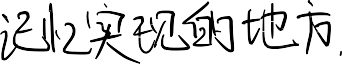 记忆实现的地方.